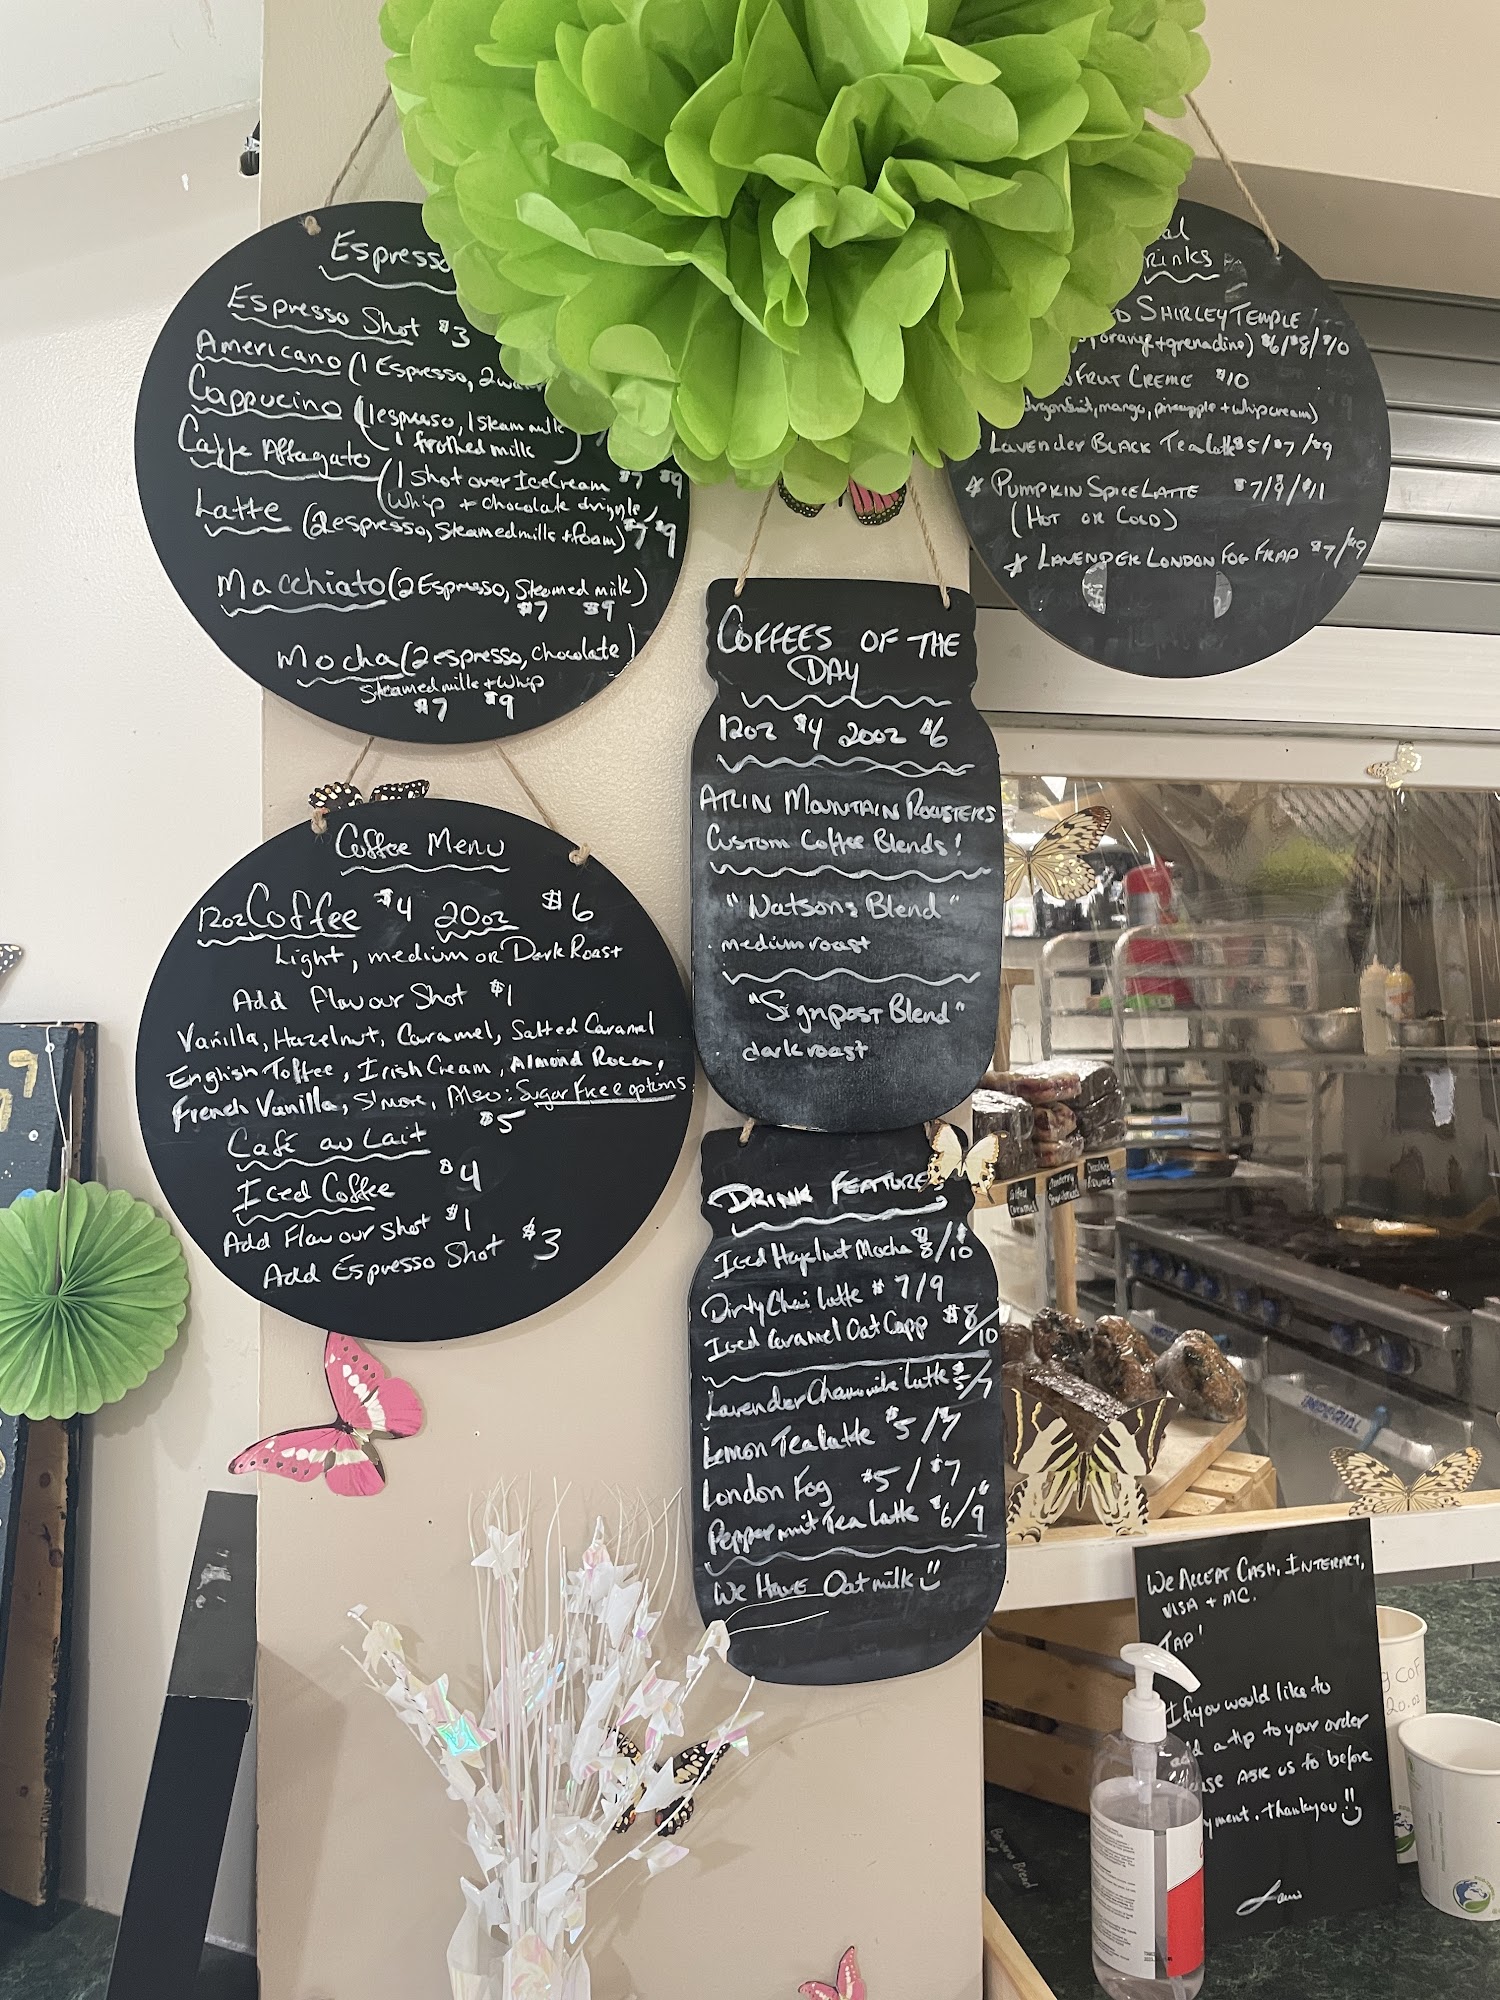 Espresso
Espresso Shot $3
Americano (1 Espresso, 2
Cappucino (1 espresso, 1 steam milk
1 frothed milk)
Caffe Affagato (1 shot over IceCream $7 $9
whip + chocolate drizzle)
Latte (2 espresso, Steamed milk + foam) $7 $9
Macchiato (2 Espresso, Steamed milk)
$7 $9
Mocha (2 espresso, chocolate)
Steamed milk + whip
$7 $9
Coffee Menu
12oz Coffee $4 20oz $6
Light, medium or Dark Roast
Add Flavour Shot $1
Vanilla, Hazelnut, Caramel, Salted Caramel
English Toffee, Irish Cream, Almond Roca,
French Vanilla, S'more, Also: Sugar Free options
Café au Lait $5
Iced Coffee $4
Add Flavour Shot $1
Add Espresso Shot $3
COFFEES OF THE
DAY
12oz $4 20oz $6
ATLIN MOUNTAIN ROASTERS
CUSTOM Coffee Blends!
"Watsons Blend"
medium roast
"Signpost Blend"
dark roast
DRINK FEATURES
Iced Hazelnut Mocha $8/$10
Dirty Chai Latte $7/9
Iced Caramel Oat Capp $8/10
Lavender Chamomile Latte $5/7
Lemon Tea Latte $5/$7
London Fog $5/$7
Peppermint Tea Latte $6/9
We HAVE Oat milk
SHIRLEY TEMPLE
, orange + grenadine) $6/$8/$10
FRUT CREME $10
dragonfruit, mango, pineapple + whip cream)
LAVENDER BLACK Tea Latte $5/$7/$9
PUMPKIN SPICE LATTE $7/9/$11
(HOT OR COLD)
LAVENDER LONDON FOG FRAP $7/$9
Salted
Caramel
WE ACCEPT CASH, INTERACT,
VISA + MC.
TAP!
If you would like to
add a tip to your order
ASK us to before
thankyou!!
Banana Bread